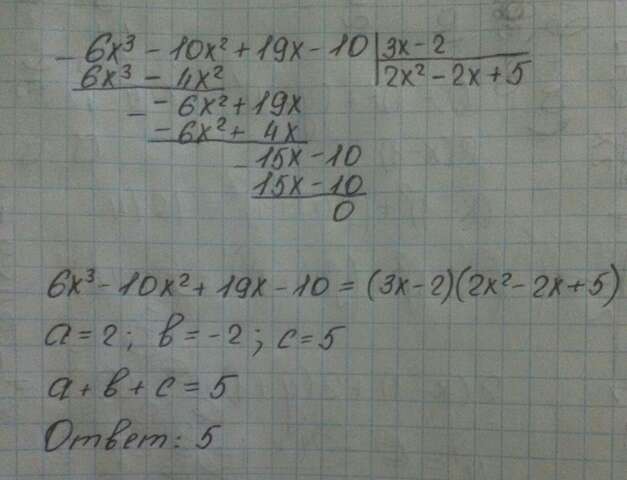 - 6x³ - 10x² + 19x - 10 | 3x - 2
6x³ - 4x² | 2x² - 2x + 5
- - 6x² + 19x
- 6x² + 4x
- 15x - 10
15x - 10
0
6x³ - 10x² + 19x - 10 = (3x - 2)(2x² - 2x + 5)
a = 2; b = -2; c = 5
a + b + c = 5
Ответ: 5